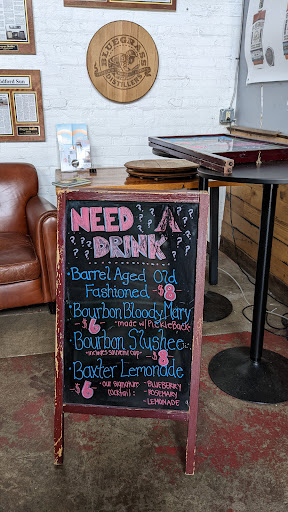 BLUEGRASS
DISTILLERS
NEED A
DRINK
? ? ? ? ? ? ?
Barrel Aged Old
Fashioned - $8
Bourbon Bloody Mary
- $6 - made w/ Pickleback
Bourbon Slushee
- includes souvenir cup - $8
Baxter Lemonade
- $6 - our signature cocktail:
- BLUEBERRY
- ROSEMARY
- LEMONADE